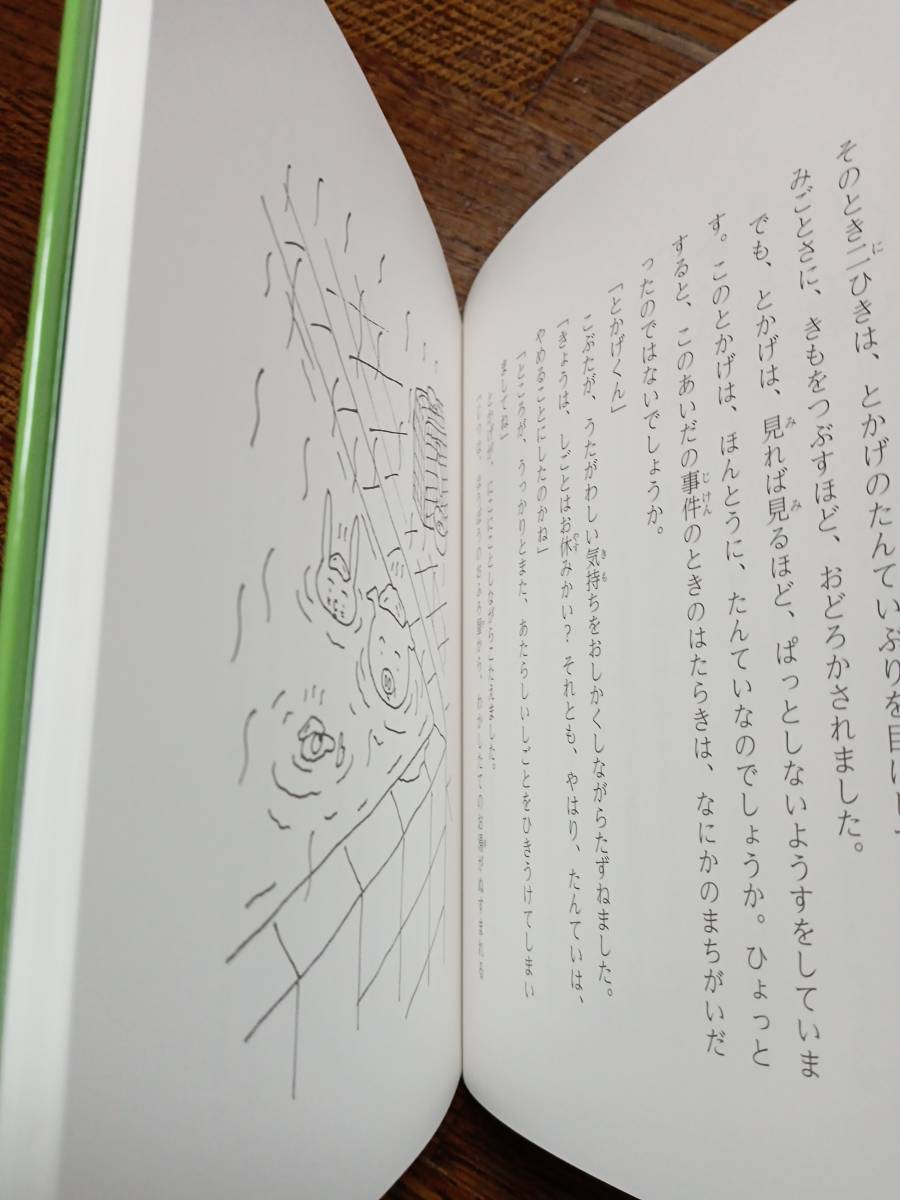 そのとき二ひきは、とかげのたんていぶりを目に
みごとさに、きもをつぶすほど、おどろかされました。
でも、とかげは、見れば見るほど、ぱっとしないようすをしていま
す。このとかげは、ほんとうに、たんていなのでしょうか。ひょっと
すると、このあいだの事件のときのはたらきは、なにかのまちがいだ
ったのではないでしょうか。
「とかげくん」
こぶたが、うたがわしい気持ちをおしかくしながらたずねました。
「きょうは、しごとはお休みかい？それとも、やはり、たんていは、
やめることにしたのかね」
「ところが、うっかりとまた、あたらしいしごとをひきうけてしまい
ましてね」
しながらこたえました。
のおふろ屋から、わかしたてのお湯がぬすまれる